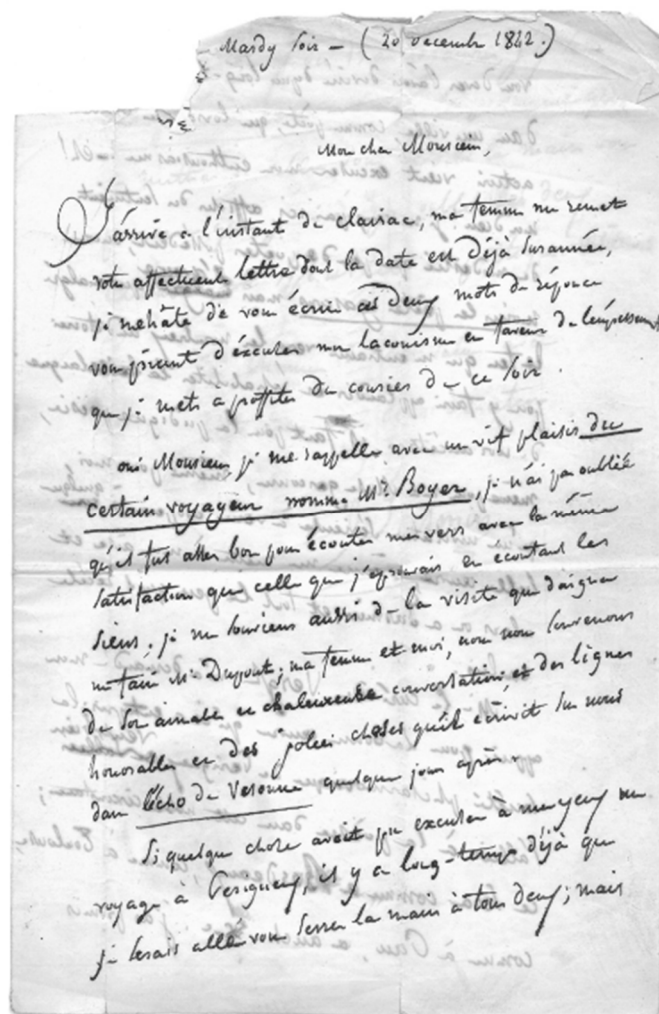 Mardy soir – (20 decembre 1842.)
Mon cher Monsieur,
J'arrive à l'instant de clairac, ma femme me remet
votre affectueuse lettre dont la date est déjà surannée,
je me hâte de vous écrire ces deux mots de réponse
vous priant d'éxcuser mon laconisme en faveur de l'empressement
que je mets a proffiter du courier de ce soir.
oui Monsieur, je me rappelle avec un vif plaisir du
certain voyageur nommé Mr Boyer, je n'ai pas oublié
qu'il fut assez bon pour écouter mes vers avec la même
satisfaction que celle que j'éprouvais en écoutant les
siens; je me souviens aussi de la visite que daigna
me faire Mr Dupont; ma femme et moi, nous nous souvenons
de son aimable et chaleureuse conversation, et des lignes
honorables et des jolies choses qu'il écrivit sur nous
dans l'écho de Vesonne quelques jours après.
Si quelque chose avoit pu excuser à mes yeux un
voyage à Perigueux, il y a long-temps déjà que
je serais allé vous serrer la main à tous deux; mais